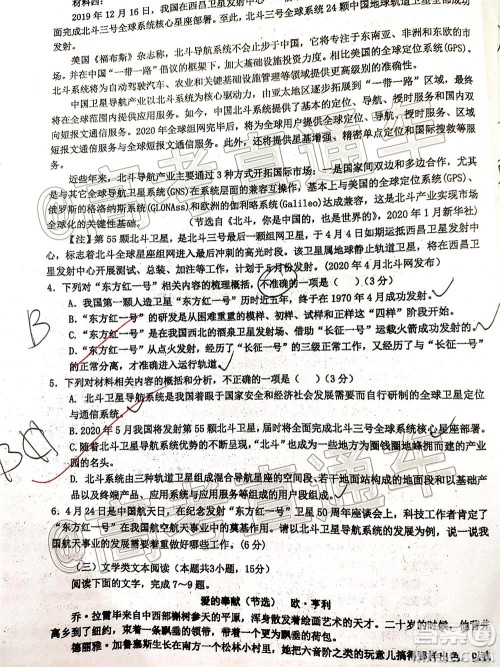 材料四：
2019 年 12 月 16 日，我国在西昌卫星发射中心
面完成北斗三号全球系统核心星座部署。至此，北斗三号全球系统 24 颗中国地球轨道卫星全部成功
发射。
美国《福布斯》杂志称，北斗导航系统不会止步于中国，它将专注于东南亚、非洲和东欧的市
场，并在中国“一带一路”倡议的框架下，加大基础设施投资力度。相比美国的全球定位系统(GPS)，
北斗系统将为自动驾驶汽车、农业和关键基础设施管理等领域提供更高级别的准确性。
中国卫星导航产业以北斗系统为核心驱动力，由亚太地区逐步拓展到“一带一路”区域，最终
将在全球范围内提供应用服务。如今，中国北斗系统提供了基本的定位、导航、授时服务和国内双
向短报文通信服务。2020 年全球组网完毕后，将为全球用户提供全球定位、导航、授时、国内双向
短报文通信服务与全球短报文通信服务。此外，还将提供星基增强、精密单点定位和国际搜救等服
务。
近些年来，北斗导航产业主要通过 3 种方式开拓国际市场：一是国家间双边和多边合作，尤其
是与其它全球导航卫星系统(GNS)在系统层面的兼容互操作，基本上与美国的全球定位系统(GPS)、
俄罗斯的格洛纳斯系统(GLONAss)和欧洲的伽利略系统(Galileo)达成兼容，这是北斗产业实现市场
全球化的关键性基础。（节选自《北斗，你是中国的，也是世界的》，2020 年 1 月新华社）
【注】第 55 颗北斗卫星，是北斗三号最后一颗组网卫星，于 4 月 4 日如期运抵西昌卫星发射中
心，标志着北斗全球星座组网进入最后冲刺的高光时段。该卫星属地球静止轨道卫星，将在西昌卫
星发射中心开展测试、总装、加注等工作，计划于 5 月份发射。(2020 年 4 月北斗网发布)
4．下列对“东方红一号”相关内容的梳理概括，不准确的一项是（ ）(3 分)
A．我国第一颗人造卫星“东方红一号”历时近五年，终于在 1970 年 4 月成功发射。
B．“东方红一号”的研发是从困难重重的模样、初样、试样和正样这“四样”阶段开始。
C．“东方红一号”是在我国西北的酒泉卫星发射场、借助“长征一号”运载火箭成功发射的。
D．“东方红一号”从点火发射，经历了“长征一号”的三级正常工作，又经历了与“长征一号”
的正常分离，才准确进入运行轨道。
B
5．下列对材料相关内容的概括和分析，不正确的一项是（ ）(3 分)
A．北斗卫星导航系统是我国着眼于国家安全和经济社会发展需要而自行研制的全球卫星定位
与通信系统。
B．2020 年 5 月我国将发射第 55 颗北斗卫星，届时将全面完成北斗三号全球系统核心星座部署。
C．随着北斗卫星导航系统优势的不断显现，“北斗”也成为一些地方为圈钱圈地蜂拥而建的产业
园的名头。
D．北斗系统由三种轨道卫星组成混合导航星座的空间段、若干地面站构成的地面段和以基础产
品以及终端产品、应用系统与应用服务等构成的用户段组成。
B
6．4 月 24 日是中国航天日，在纪念发射“东方红一号”卫星 50 周年座谈会上，科技工作者肯定了
“东方红一号”在我国航空航天事业中的奠基作用。请以北斗卫星导航系统的发展为例，说一说我
国航天事业的发展需要着重做好哪些工作。(6 分)
（三）文学类文本阅读（本题共3小题，15分）
阅读下面的文字，完成7～9题。
爱的奉献（节选） 欧·亨利
乔·拉雷毕来自中西部槲树参天的平原，浑身散发着绘画艺术的天才。二十岁的时候，他背井
离乡到了纽约，束着一条飘垂的领带，带着一个更为飘垂的荷包。
德丽雅·加鲁塞斯生长在南方一个松林小村里，她把六音阶之类的玩意儿搞得那样出色